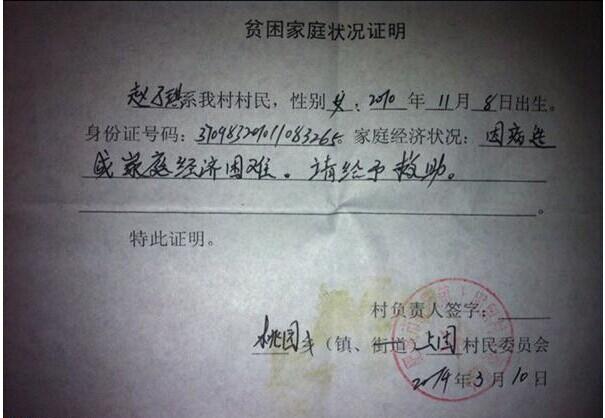 贫困家庭状况证明
赵子琪系我村村民，性别女；2010年11月8日出生。
身份证号码：370983201011083265。家庭经济状况：因病造
成家庭经济困难。请给予救助。
。
特此证明。
村负责人签字：
桃园乡（镇、街道）上固村民委员会
2014年3月10日